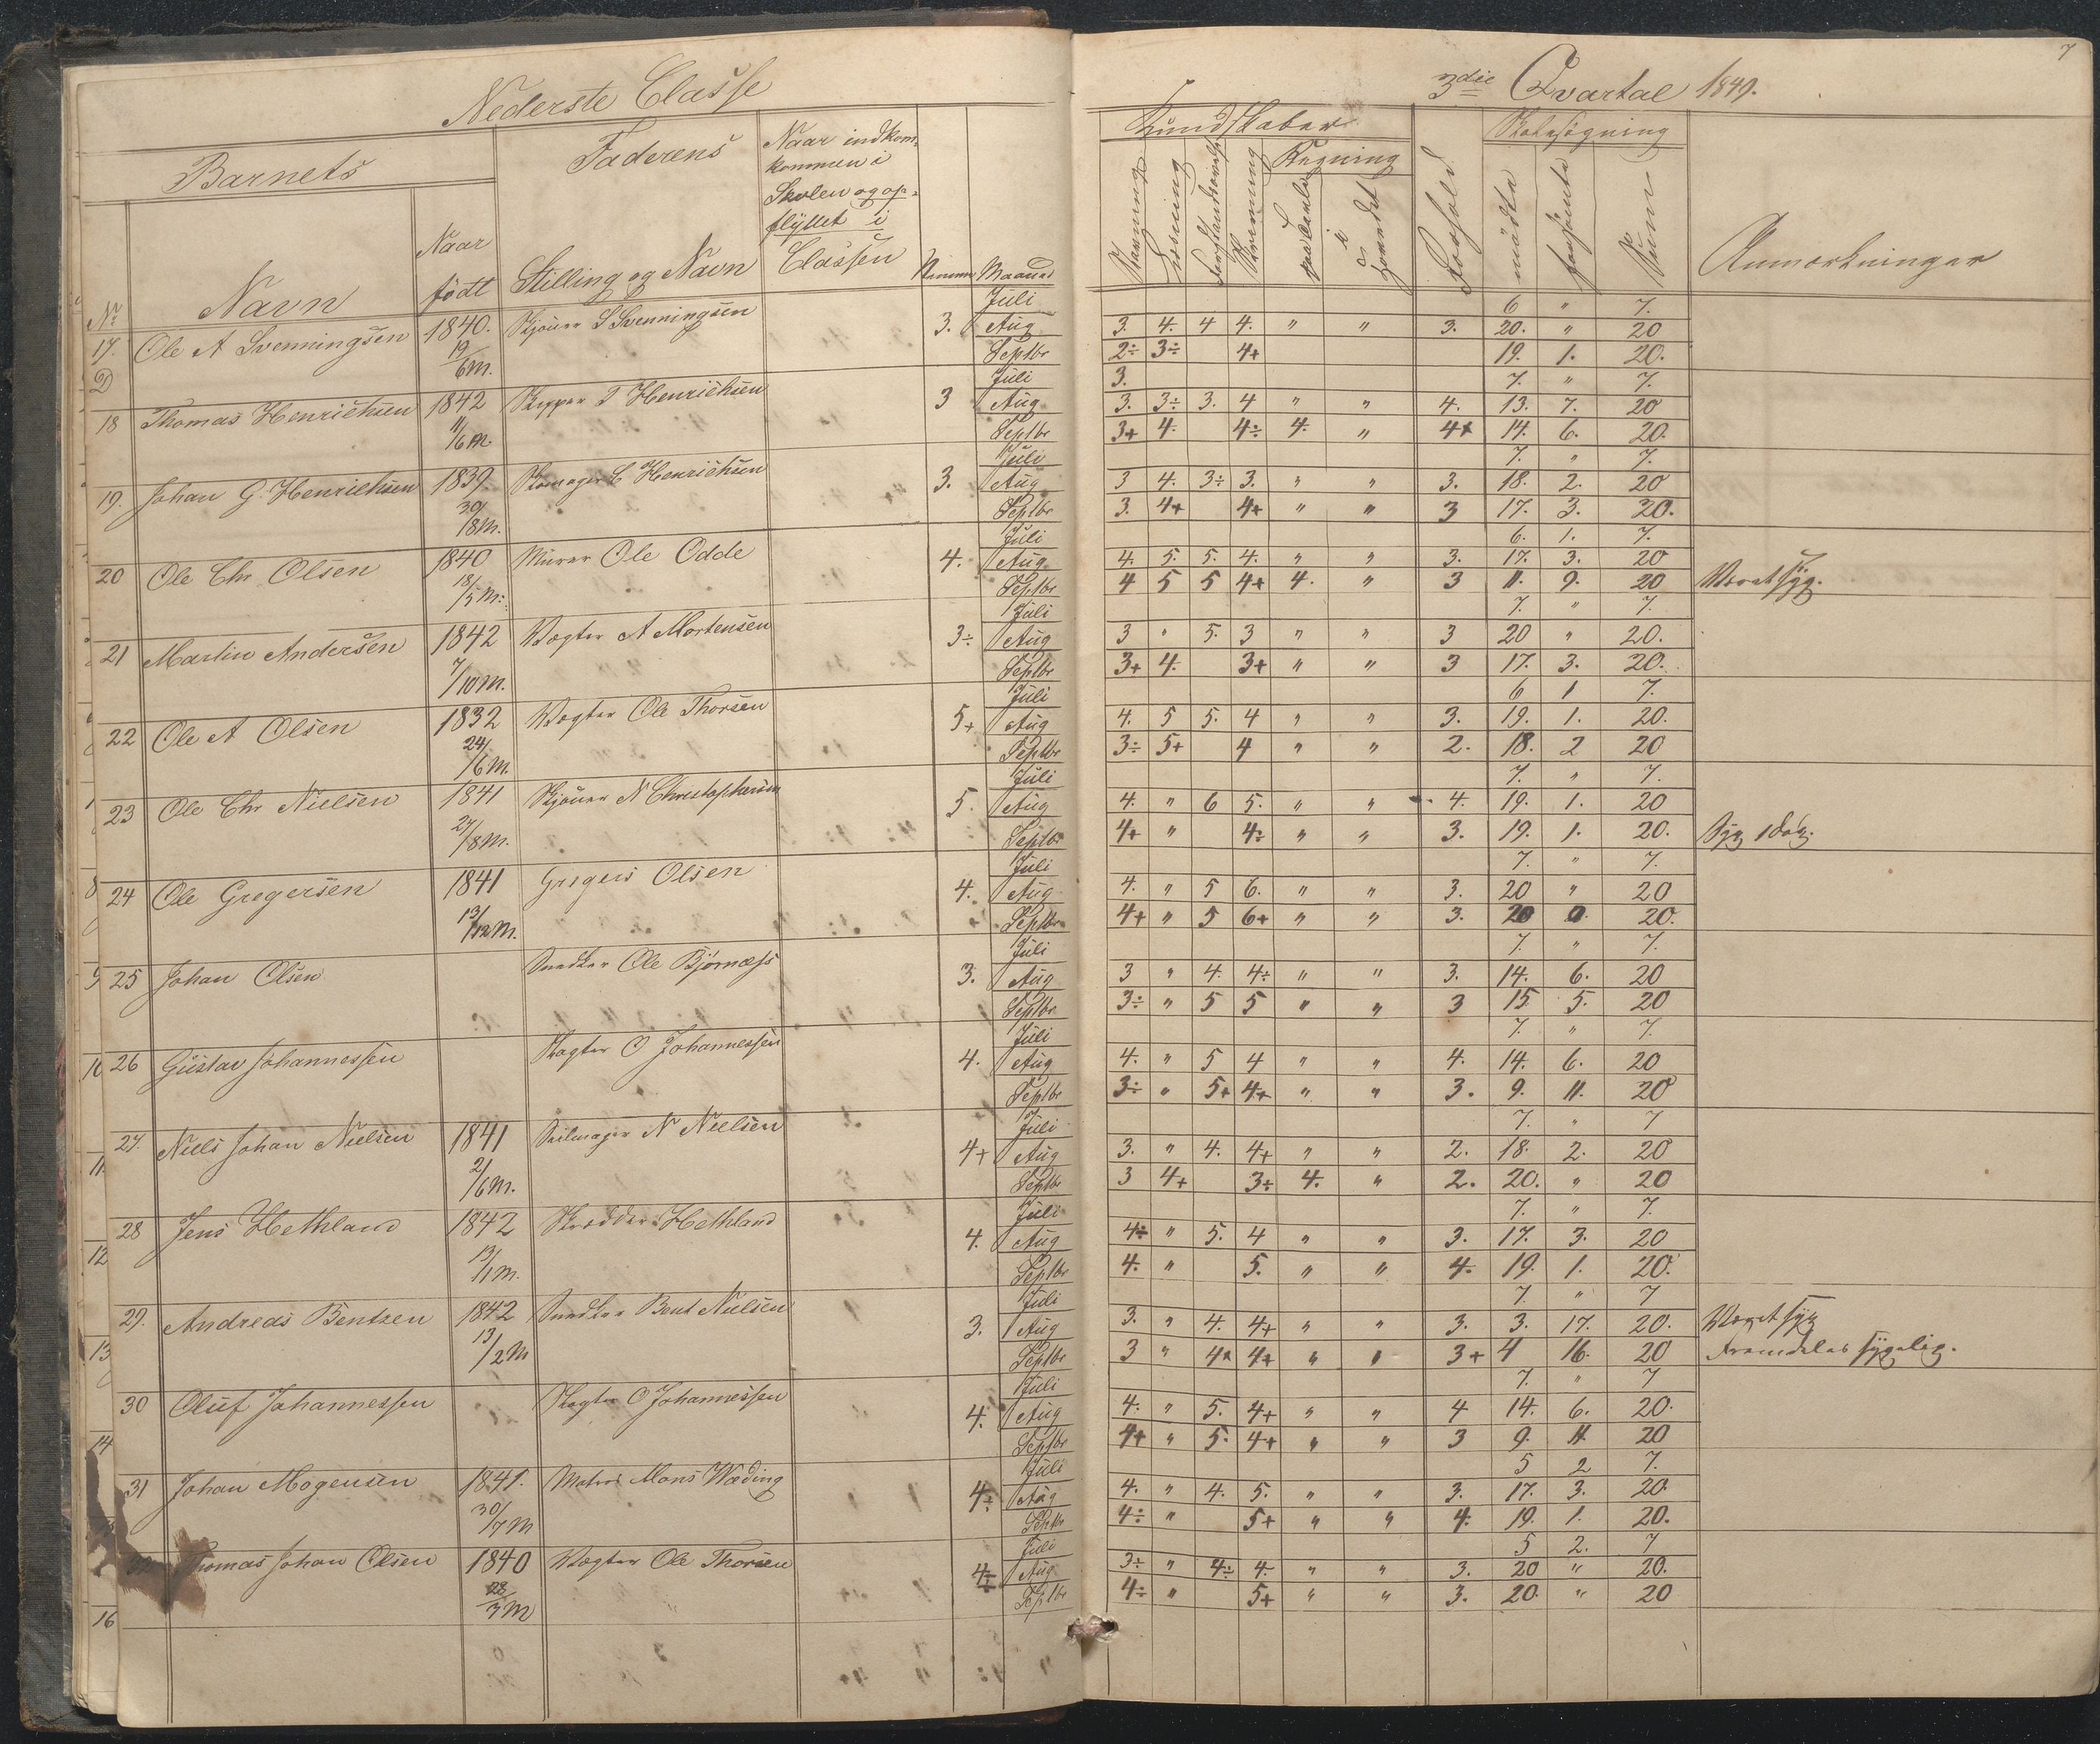 Nederste Classe
Barnets
Faderens
Naar indkom-
kommen i
Skolen og op-
flyttet i
Classen
No
Navn
Naar
født
Stilling og Navn
Maaned
17. Ole A Svenningsen 1840. 19/6 M. S Svenningsen 3.
Juli
Aug
Septbr
18 Thomas Henrichsen 1842 11/6 M. Skipper T Henrichsen 3
Juli
Aug
Septbr
19. Johan G. Henrichsen 1839. 30/8 M. Skomager C Henrichsen 3.
Juli
Aug
Septbr
20 Ole Chr. Olsen 1840 18/5 M. Murer Ole Odde 4.
Juli
Aug
Septbr
21 Martin Andersen 1842 7/10 M. Vægter A Mortensen 3÷
Juli
Aug
Septbr
22 Ole A Olsen 1832 24/6 M. Vægter Ole Thorsen 5+
Juli
Aug
Septbr
23 Ole Chr Nielsen 1841 27/8 M. N Christophersen 5.
Juli
Aug
Septbr
24 Ole Gregersen 1841 13/12 M. Gregers Olsen 4.
Juli
Aug
Septbr
25 Johan Olsen Snedker Ole Bjørnæss 3.
Juli
Aug
Septbr
26 Gustav Johannessen O Johannessen 4.
Juli
Aug
Septbr
27. Niels Johan Nielsen 1841 2/6 M. Seilmager N Nielsen 4+
Juli
Aug
Septbr
28 Jens Hethland 1842 13/1 M. Skrædder Hethland 4.
Juli
Aug
Septbr
29. Andreas Bentzen 1842 13/2 M Snedker Bent Nielsen 3.
Juli
Aug
Septbr
30 Oluf Johannessen O Johannessen 4.
Juli
Aug
Septbr
31 Johan Mogensen 1841. 30/7 M Matros Mons Wæding 4÷
Juli
Aug
Septbr
Thomas Johan Olsen 1840 28/3 M Vægter Ole Thorsen 4÷
Juli
Aug
Septbr
7
3die Qvartal 1849.
Kundskaber
Regning
Skolesøgning
Læsning
Skrivning
i Hovedet
Forhold
mødte
forsømte
Sum
Anmærkninger
6 " 7.
3. 4. 4 4. " " 3. 20. " 20
2÷ 3÷ 4+ 19. 1. 20.
3. 7. " 7.
3. 3÷ 3. 4 " " 4. 13. 7. 20
3+ 4. 4÷ 4. " 4+ 14. 6. 20.
7. " 7.
3 4. 3÷ 3. " " 3. 18. 2. 20
3. 4+ 4+ " " 3 17. 3. 20.
6. 1. 7.
4. 5. 5. 4. " " 3. 17. 3. 20
4 5 5 4+ 4. " 3 11. 9. 20 Været syg.
7. " 7.
3 " 5. 3 " " 3 20 " 20.
3+ 4. 3+ " " 3 17. 3. 20.
6 1 7.
4. 5 5. 4 " " 3. 19. 1. 20.
3÷ 5+ 4 " " 2. 18. 2 20
7. " 7.
4. " 6 5. " " 4. 19. 1. 20
4+ " 4÷ " " 3. 19. 1. 20. Syg 1 Dag.
7. " 7.
4. " 5 6. " " 3. 20 " 20
4+ " 5 6+ " " 3. 20 0. 20.
7. " 7.
3 " 4. 4÷ " " 3. 14. 6. 20
3÷ " 5 5 " " 3 15 5. 20
7. " 7.
4. " 5 4 " " 4. 14. 6. 20
3÷ " 5+ 4+ " " 3. 9. 11. 20
7. " 7
3. " 4. 4+ " " 2. 18. 2. 20
3 4+ 3÷ 4. " 2. 20. " 20
7. " 7.
4÷ " 5. 4 " " 3. 17. 3. 20
4. " 5. " " 4. 19. 1. 20.
7. " 7
3. " 4. 4+ " " 3. 3. 17. 20. Været syg
3 " 4+ 4+ " " 3+ 4 16. 20 Fremdeles sygelig.
7. " 7
4. " 5. 4+ " " 4 14. 6. 20.
4+ " 5. 4+ " " 3 9. 11. 20
5 2 7.
4. " 4. 5. " " 3. 17. 3. 20.
4÷ " 5+ " " 4. 19. 1. 20.
5 2. 7
3÷ " 4÷ 4. " " 3. 20 " 20.
4÷ " 5+ " " 3. 20. " 20